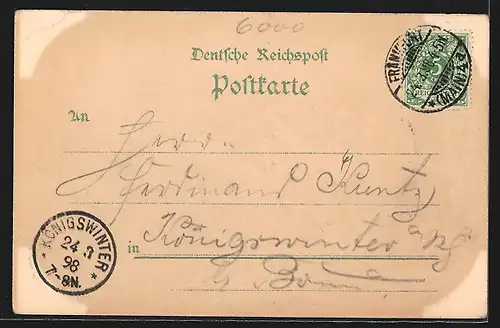 6000
Deutsche Reichspost
Postkarte
An
Herrn
Ferdinand Kuntz
in Königswinter a/Rh
bei Bonn
FRANKFURT
(MAIN)
5
KÖNIGSWINTER
24 3
98
7-8N.